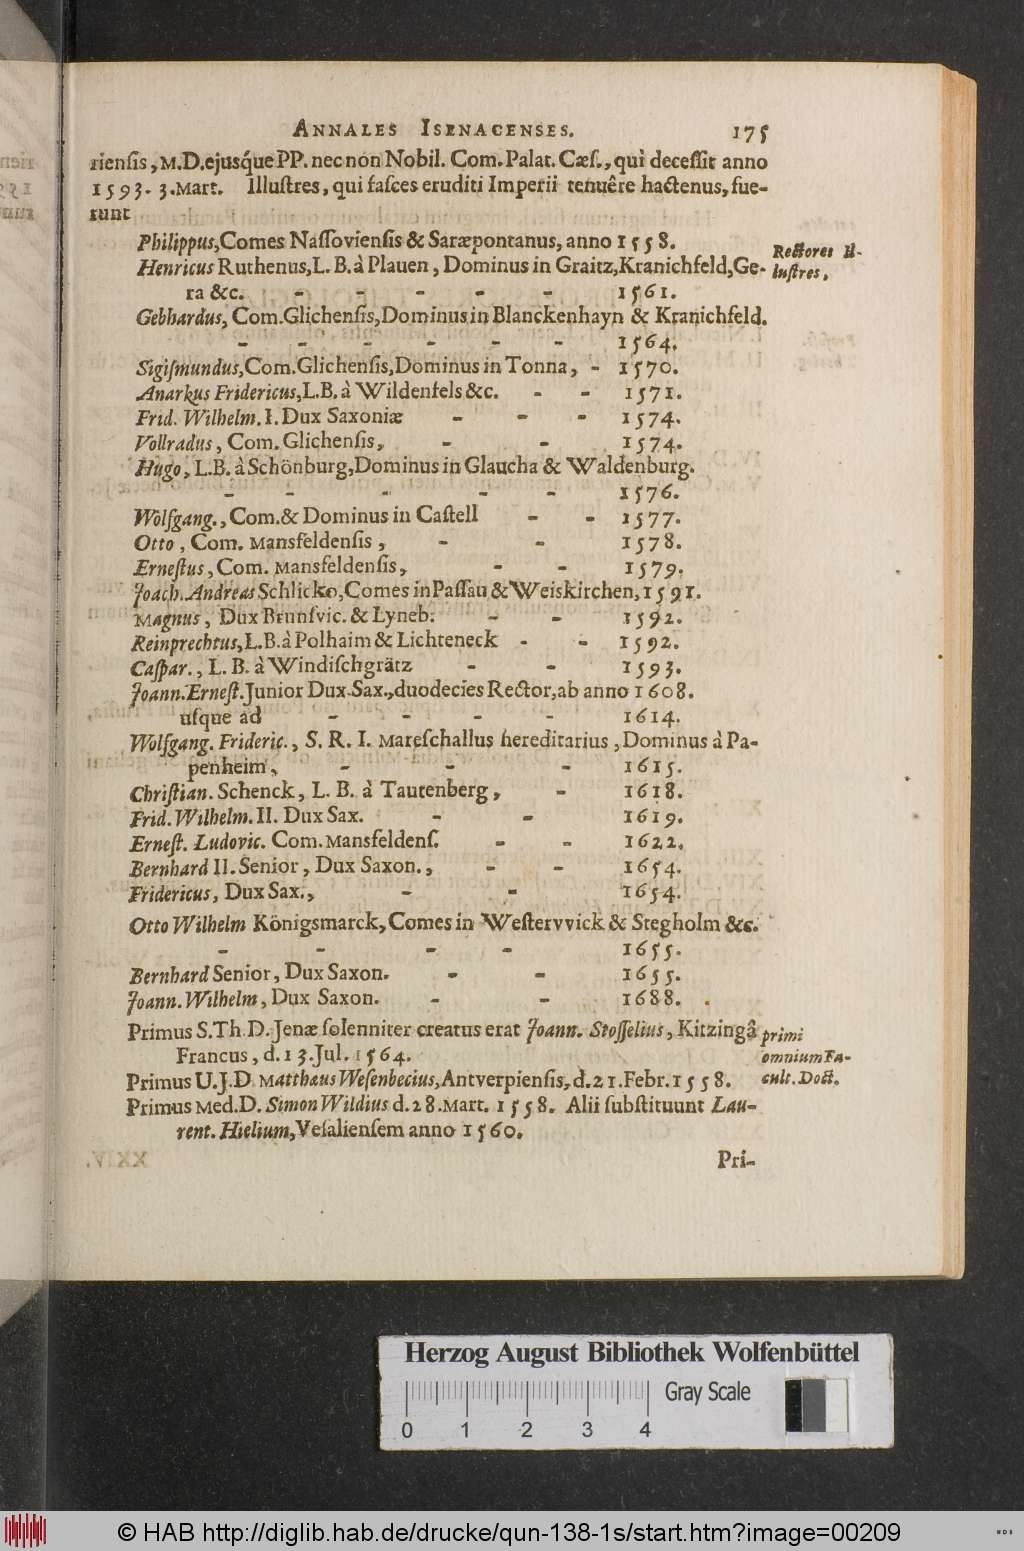 ANNALES ISENACENSES. 175
rienſis, M.D. ejusq́ue PP. nec non Nobil. Com. Palat. Cæſ., qui deceſſit anno
1593. 3. Mart. Illuſtres, qui faſces eruditi Imperii tenuêre hactenus, fue-
runt
Philippus, Comes Naſſovienſis & Saræpontanus, anno 1558.
Rectores il-
Henricus Ruthenus, L. B. à Plauen, Dominus in Graitz, Kranichfeld, Ge-
luſtres.
ra &c. - - - - - 1561.
Gebhardus, Com. Glichenſis, Dominus in Blanckenhayn & Kranichfeld.
- - - - - - 1564.
Sigiſmundus, Com. Glichenſis, Dominus in Tonna, - 1570.
Anarkus Fridericus, L.B. à Wildenfels &c. - - 1571.
Frid. Wilhelm. I. Dux Saxoniæ - - - 1574.
Vollradus, Com. Glichenſis, - - 1574.
Hugo, L.B. à Schönburg, Dominus in Glaucha & Waldenburg.
- - - - - 1576.
Wolfgang., Com. & Dominus in Caſtell - - 1577.
Otto, Com. Mansfeldenſis, - - 1578.
Erneſtus, Com. Mansfeldenſis, - - 1579.
Joach. Andreas Schlicko, Comes in Paſſau & Weiskirchen, 1591.
Magnus, Dux Brunſvic. & Lyneb. - - 1592.
Reinprechtus, L.B. à Polhaim & Lichteneck - - 1592.
Caſpar., L. B. à Windiſchgrätz - - 1593.
Joann. Erneſt. Junior Dux Sax., duodecies Rector, ab anno 1608.
uſque ad - - - - 1614.
Wolfgang. Frideric., S. R. I. Mareſchallus hereditarius, Dominus à Pa-
penheim, - - - 1615.
Chriſtian. Schenck, L. B. à Tautenberg, - 1618.
Frid. Wilhelm. II. Dux Sax. - - 1619.
Erneſt. Ludovic. Com. Mansfeldenſ. - - 1622.
Bernhard II. Senior, Dux Saxon., - - 1654.
Fridericus, Dux Sax., - - 1654.
Otto Wilhelm Königsmarck, Comes in Weſtervvick & Stegholm &c.
- - - - 1655.
Bernhard Senior, Dux Saxon. - - 1655.
Joann. Wilhelm, Dux Saxon. - - 1688.
Primus S. Th. D. Jenæ ſolenniter creatus erat Joann. Stoſſelius, Kitzingâ
primi
Francus, d. 13. Jul. 1564.
omnium Fa-
Primus U. J. D. Matthæus Weſenbecius, Antverpienſis, d. 21. Febr. 1558.
cult. Doct.
Primus Med. D. Simon Wildius d. 28. Mart. 1558. Alii ſubſtituunt Lau-
rent. Hielium, Veſalienſem anno 1560.
Pri-
Herzog August Bibliothek Wolfenbüttel
Gray Scale
0 1 2 3 4
© HAB http://diglib.hab.de/drucke/qun-138-1s/start.htm?image=00209